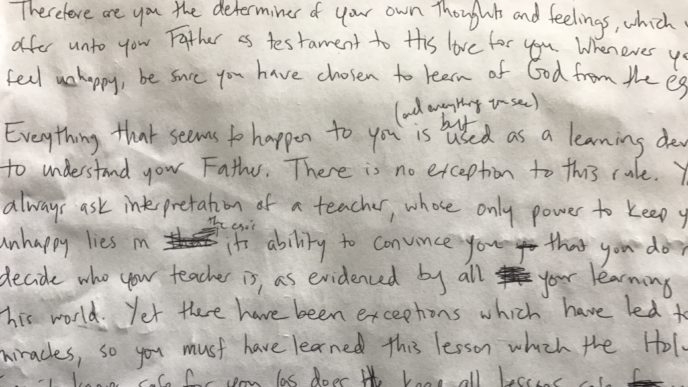 Therefore are you the determiner of your own thoughts and feelings, which
offer unto your Father as testament to His love for you. Whenever yo
feel unhappy, be sure you have chosen to learn of God from the eg
(and everything you see)
but
Everything that seems to happen to you is used as a learning dev
to understand your Father. There is no exception to this rule. Y
always ask interpretation of a teacher, whose only power to keep y
the ego's
unhappy lies in its ability to convince you that you do n
decide who your teacher is, as evidenced by all your learning
this world. Yet there have been exceptions which have led to
miracles, so you must have learned this lesson which the Hol
safe for you does all lessons safe